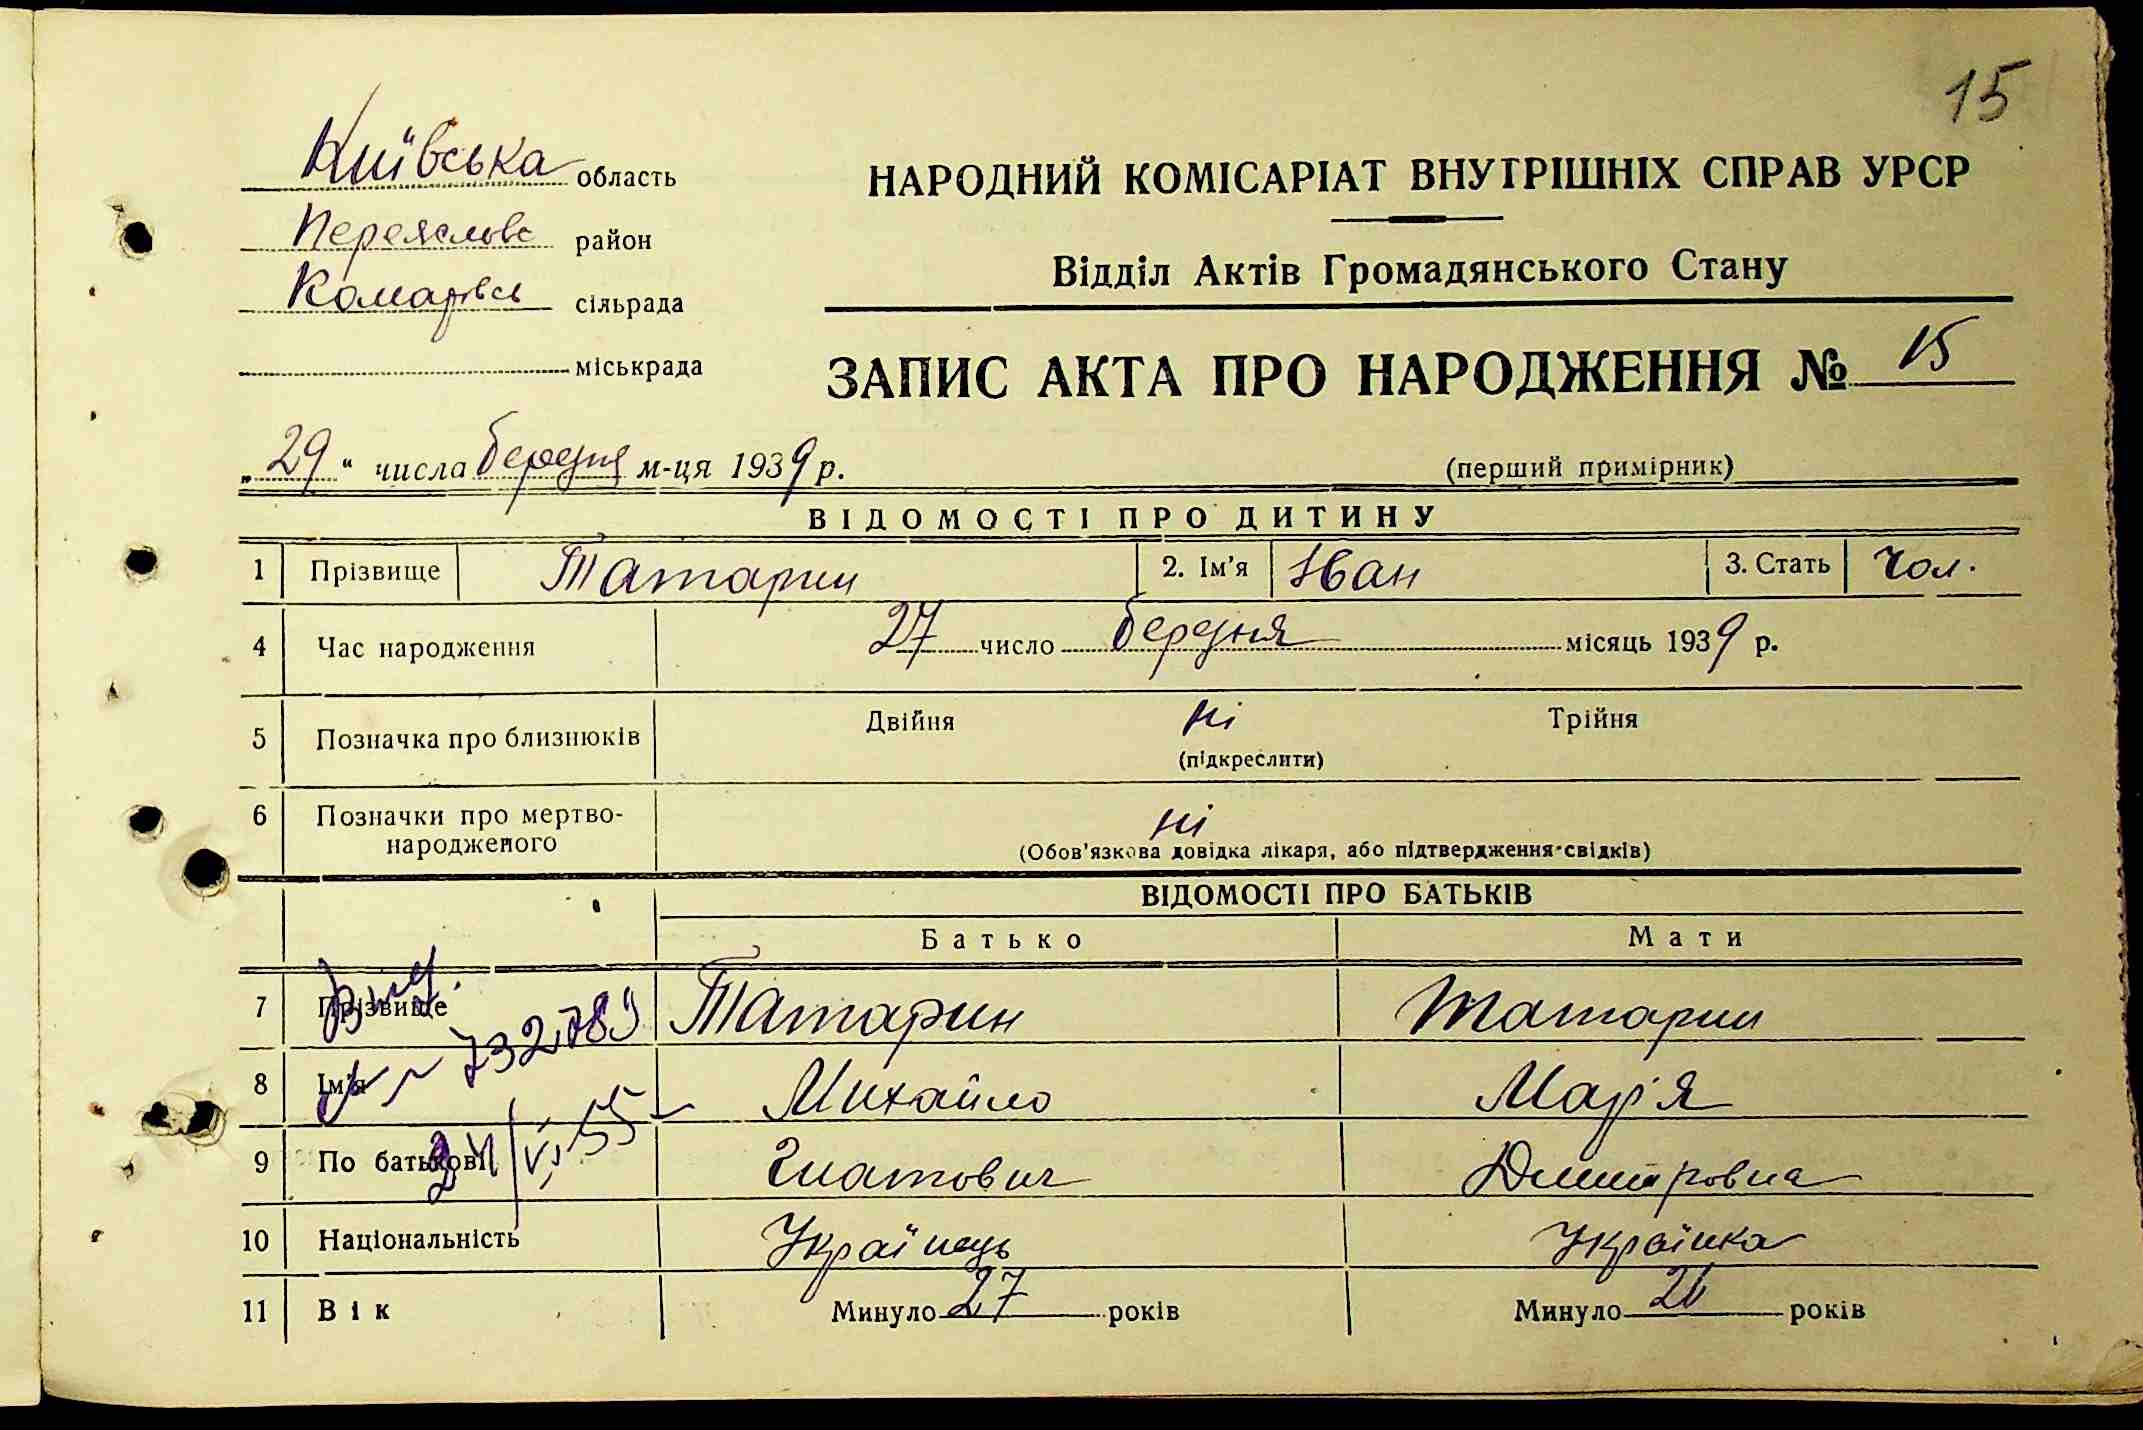 15
Київська область
Переяславс район
Комарівсь сільрада
міськрада
НАРОДНИЙ КОМІСАРІАТ ВНУТРІШНІХ СПРАВ УРСР
Відділ Актів Громадянського Стану
ЗАПИС АКТА ПРО НАРОДЖЕННЯ № 15
„29“ числа березня м-ця 1939 р.
(перший примірник)
ВІДОМОСТІ ПРО ДИТИНУ
1 Прізвище Татарин 2. Ім'я Іван 3. Стать Чол.
4 Час народження 27 число березня місяць 1939 р.
5 Позначка про близнюків Двійня ні Трійня
(підкреслити)
6 Позначки про мертво-
народженого ні
(Обов'язкова довідка лікаря, або підтвердження свідків)
ВІДОМОСТІ ПРО БАТЬКІВ
Батько Мати
7 Прізвище Татарин Татарин
732789
8 Ім'я Михайло Марія
24/VI 55
9 По батькові Гнатович Дмитровна
10 Національність Українець Українка
11 Вік Минуло 27 років Минуло 26 років